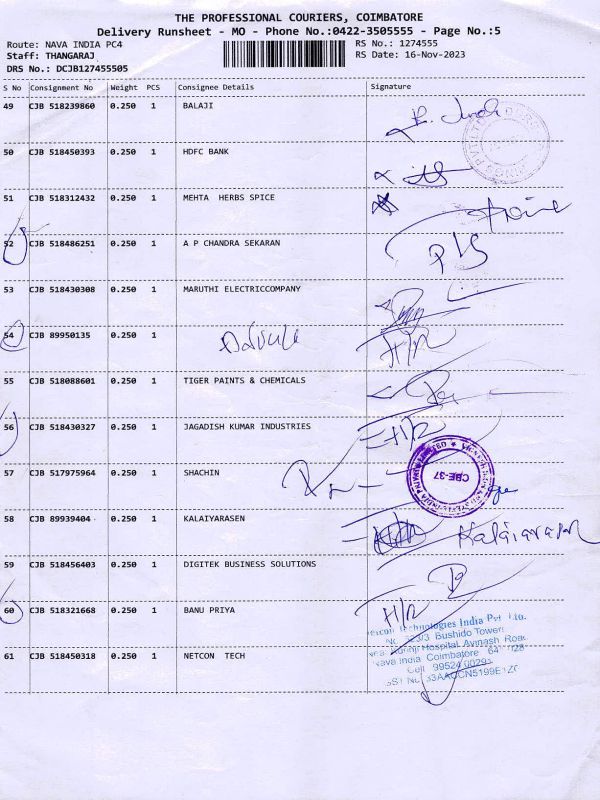 THE PROFESSIONAL COURIERS, COIMBATORE
Delivery Runsheet - MO - Phone No.:0422-3505555 - Page No.:5
Route: NAVA INDIA PC4
RS No.: 1274555
Staff: THANGARAJ
RS Date: 16-Nov-2023
DRS No.: DCJB127455505
S No Consignment No Weight PCS Consignee Details Signature
49 CJB 518239860 0.250 1 BALAJI
50 CJB 518450393 0.250 1 HDFC BANK
51 CJB 518312432 0.250 1 MEHTA HERBS SPICE
52 CJB 518486251 0.250 1 A P CHANDRA SEKARAN
53 CJB 518430308 0.250 1 MARUTHI ELECTRICCOMPANY
54 CJB 89950135 0.250 1
55 CJB 518088601 0.250 1 TIGER PAINTS & CHEMICALS
56 CJB 518430327 0.250 1 JAGADISH KUMAR INDUSTRIES
57 CJB 517975964 0.250 1 SHACHIN
CBE-37
58 CJB 89939404 0.250 1 KALAIYARASEN Kalaiarasan
59 CJB 518456403 0.250 1 DIGITEK BUSINESS SOLUTIONS
60 CJB 518321668 0.250 1 BANU PRIYA H/R
Technologies India Pvt. Ltd.
Bushido Tower
Hospital, Avinash Road
61 CJB 518450318 0.250 1 NETCON TECH Nava India Coimbatore